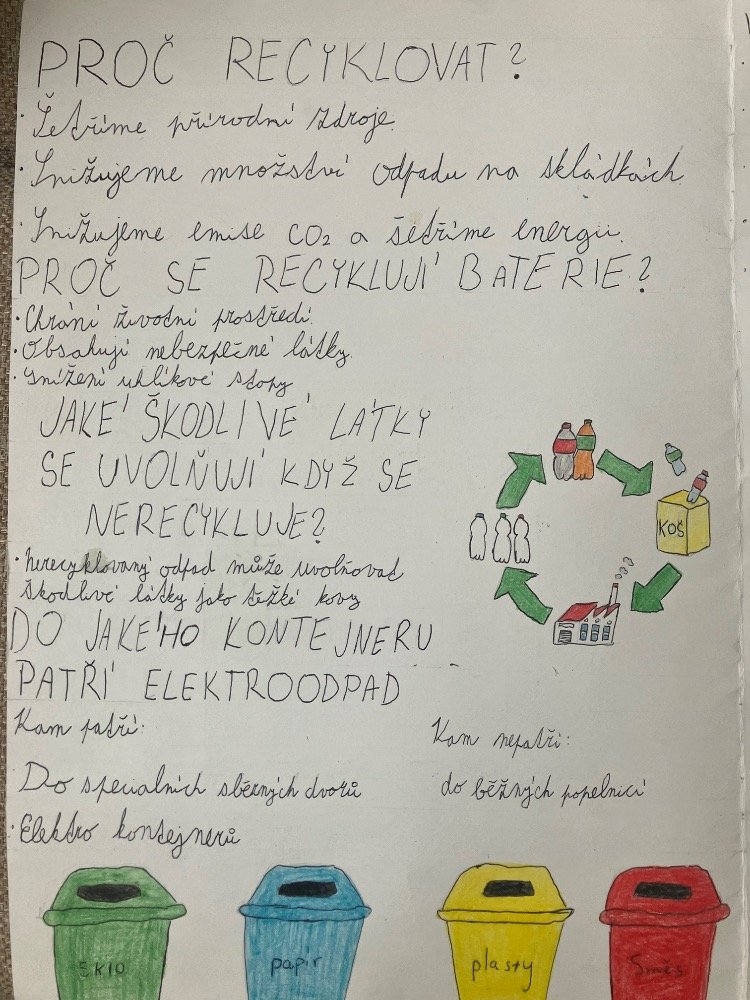 PROČ RECYKLOVAT?
· Šetříme přírodní zdroje.
· Snižujeme množství odpadu na skládkách.
· Snižujeme emise CO₂ a šetříme energii.
PROČ SE RECYKLUJÍ BATERIE?
· Chrání životní prostředí.
· Obsahují nebezpečné látky.
· Snížení uhlíkové stopy
JAKÉ ŠKODLIVÉ LÁTKY
SE UVOLŇUJÍ KDYŽ SE
NERECYKLUJE?
KOŠ
· Nerecyklovaný odpad může uvolňovat
škodlivé látky jako těžké kovy
DO JAKÉHO KONTEJNERU
PATŘÍ ELEKTROODPAD
Kam patří:
Kam nepatří:
Do specialních sběrných dvorů
do běžných popelnicí
· Elektro kontejnerů
SKlO
papír
plasty
Směs